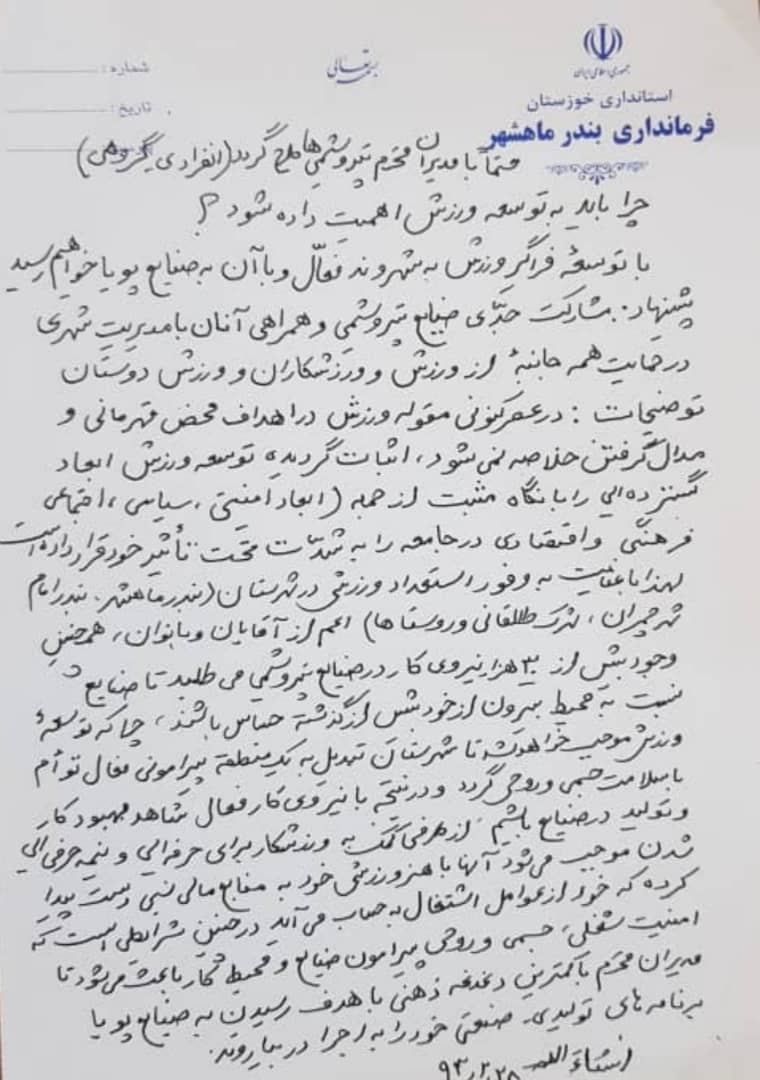 جمهوری اسلامی ایران
بسمه تعالی
شماره :
تاریخ :
استانداری خوزستان
فرمانداری بندر ماهشهر
حتماً با مدیران محترم پتروشیمی‌ها مطرح گردد (انفرادی یا گروهی)
چرا باید به توسعه ورزش اهمیت داده شود ؟
با توسعهٔ فراگیر ورزش به شهروند فعّال و با آن به صنایع پویا خواهیم رسید
پیشنهاد : مشارکت جدّی صنایع پتروشیمی و همراهی آنان با مدیریت شهری
در حمایت همه جانبهٔ از ورزش و ورزشکاران و ورزش دوستان
توضیحات : در عصر کنونی مقوله ورزش در اهداف محض قهرمانی و
مدال گرفتن خلاصه نمی شود ، اثبات گردیده توسعه ورزش ابعاد
گسترده‌ای را با نگاه مثبت از جمله (ابعاد امنیتی ، سیاسی ، اجتماعی
فرهنگی و اقتصادی در جامعه را به شدّت تحت تأثیر خود قرار داده است
لهذا با عنایت به وفور استعداد ورزشی در شهرستان (بندر ماهشهر ، بندر امام
شهر چمران ، شهرک طالقانی و روستاها) اعم از آقایان و بانوان ، همچنین
وجود بیش از ۳۰ هزار نیروی کار در صنایع پتروشیمی می طلبد تا صنایع
نسبت به محیط بیرون از خود بیش از گذشته حساس باشند ، چرا که توسعهٔ
ورزش موجب خواهد شد تا شهرستان تبدیل به یک منطقه پیرامونی فعال توأم
با سلامت جسمی و روحی گردد و در نتیجه با نیروی کار فعال شاهد بهبود کار
و تولید در صنایع باشیم . از طرفی کمک به ورزشکار برای حرفه‌ای و نیمه حرفه‌ای
شدن موجب می‌شود آنها با هنر ورزشی خود به منابع مالی نسبی دست پیدا
کرده که خود از عوامل اشتغال به حساب می آید در چنین شرایطی است که
امنیت شغلی ، جسمی و روحی پیرامون صنایع و محیط کار باعث می‌شود تا
مدیران محترم با کمترین دغدغه ذهنی با هدف رسیدن به صنایع پویا
برنامه های تولیدی ، صنعتی خود را به اجرا در بیاورند .
انشاءالله